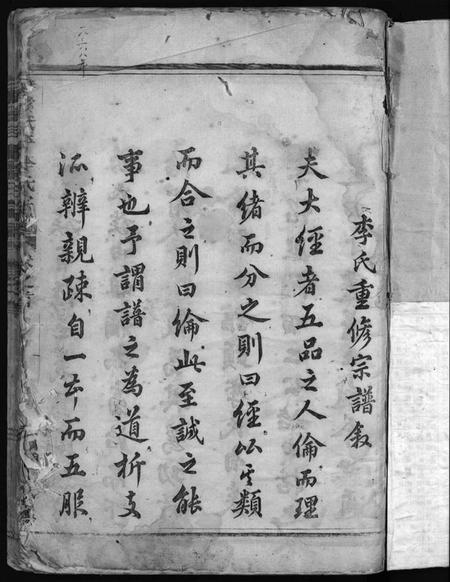 李氏重修宗譜叙
夫大經者五品之人倫而理
其緒而分之則曰經比其類
而合之則曰綸此至誠之能
事也予謂譜之為道析支
派辦親疎自一本而五服
一六六八年